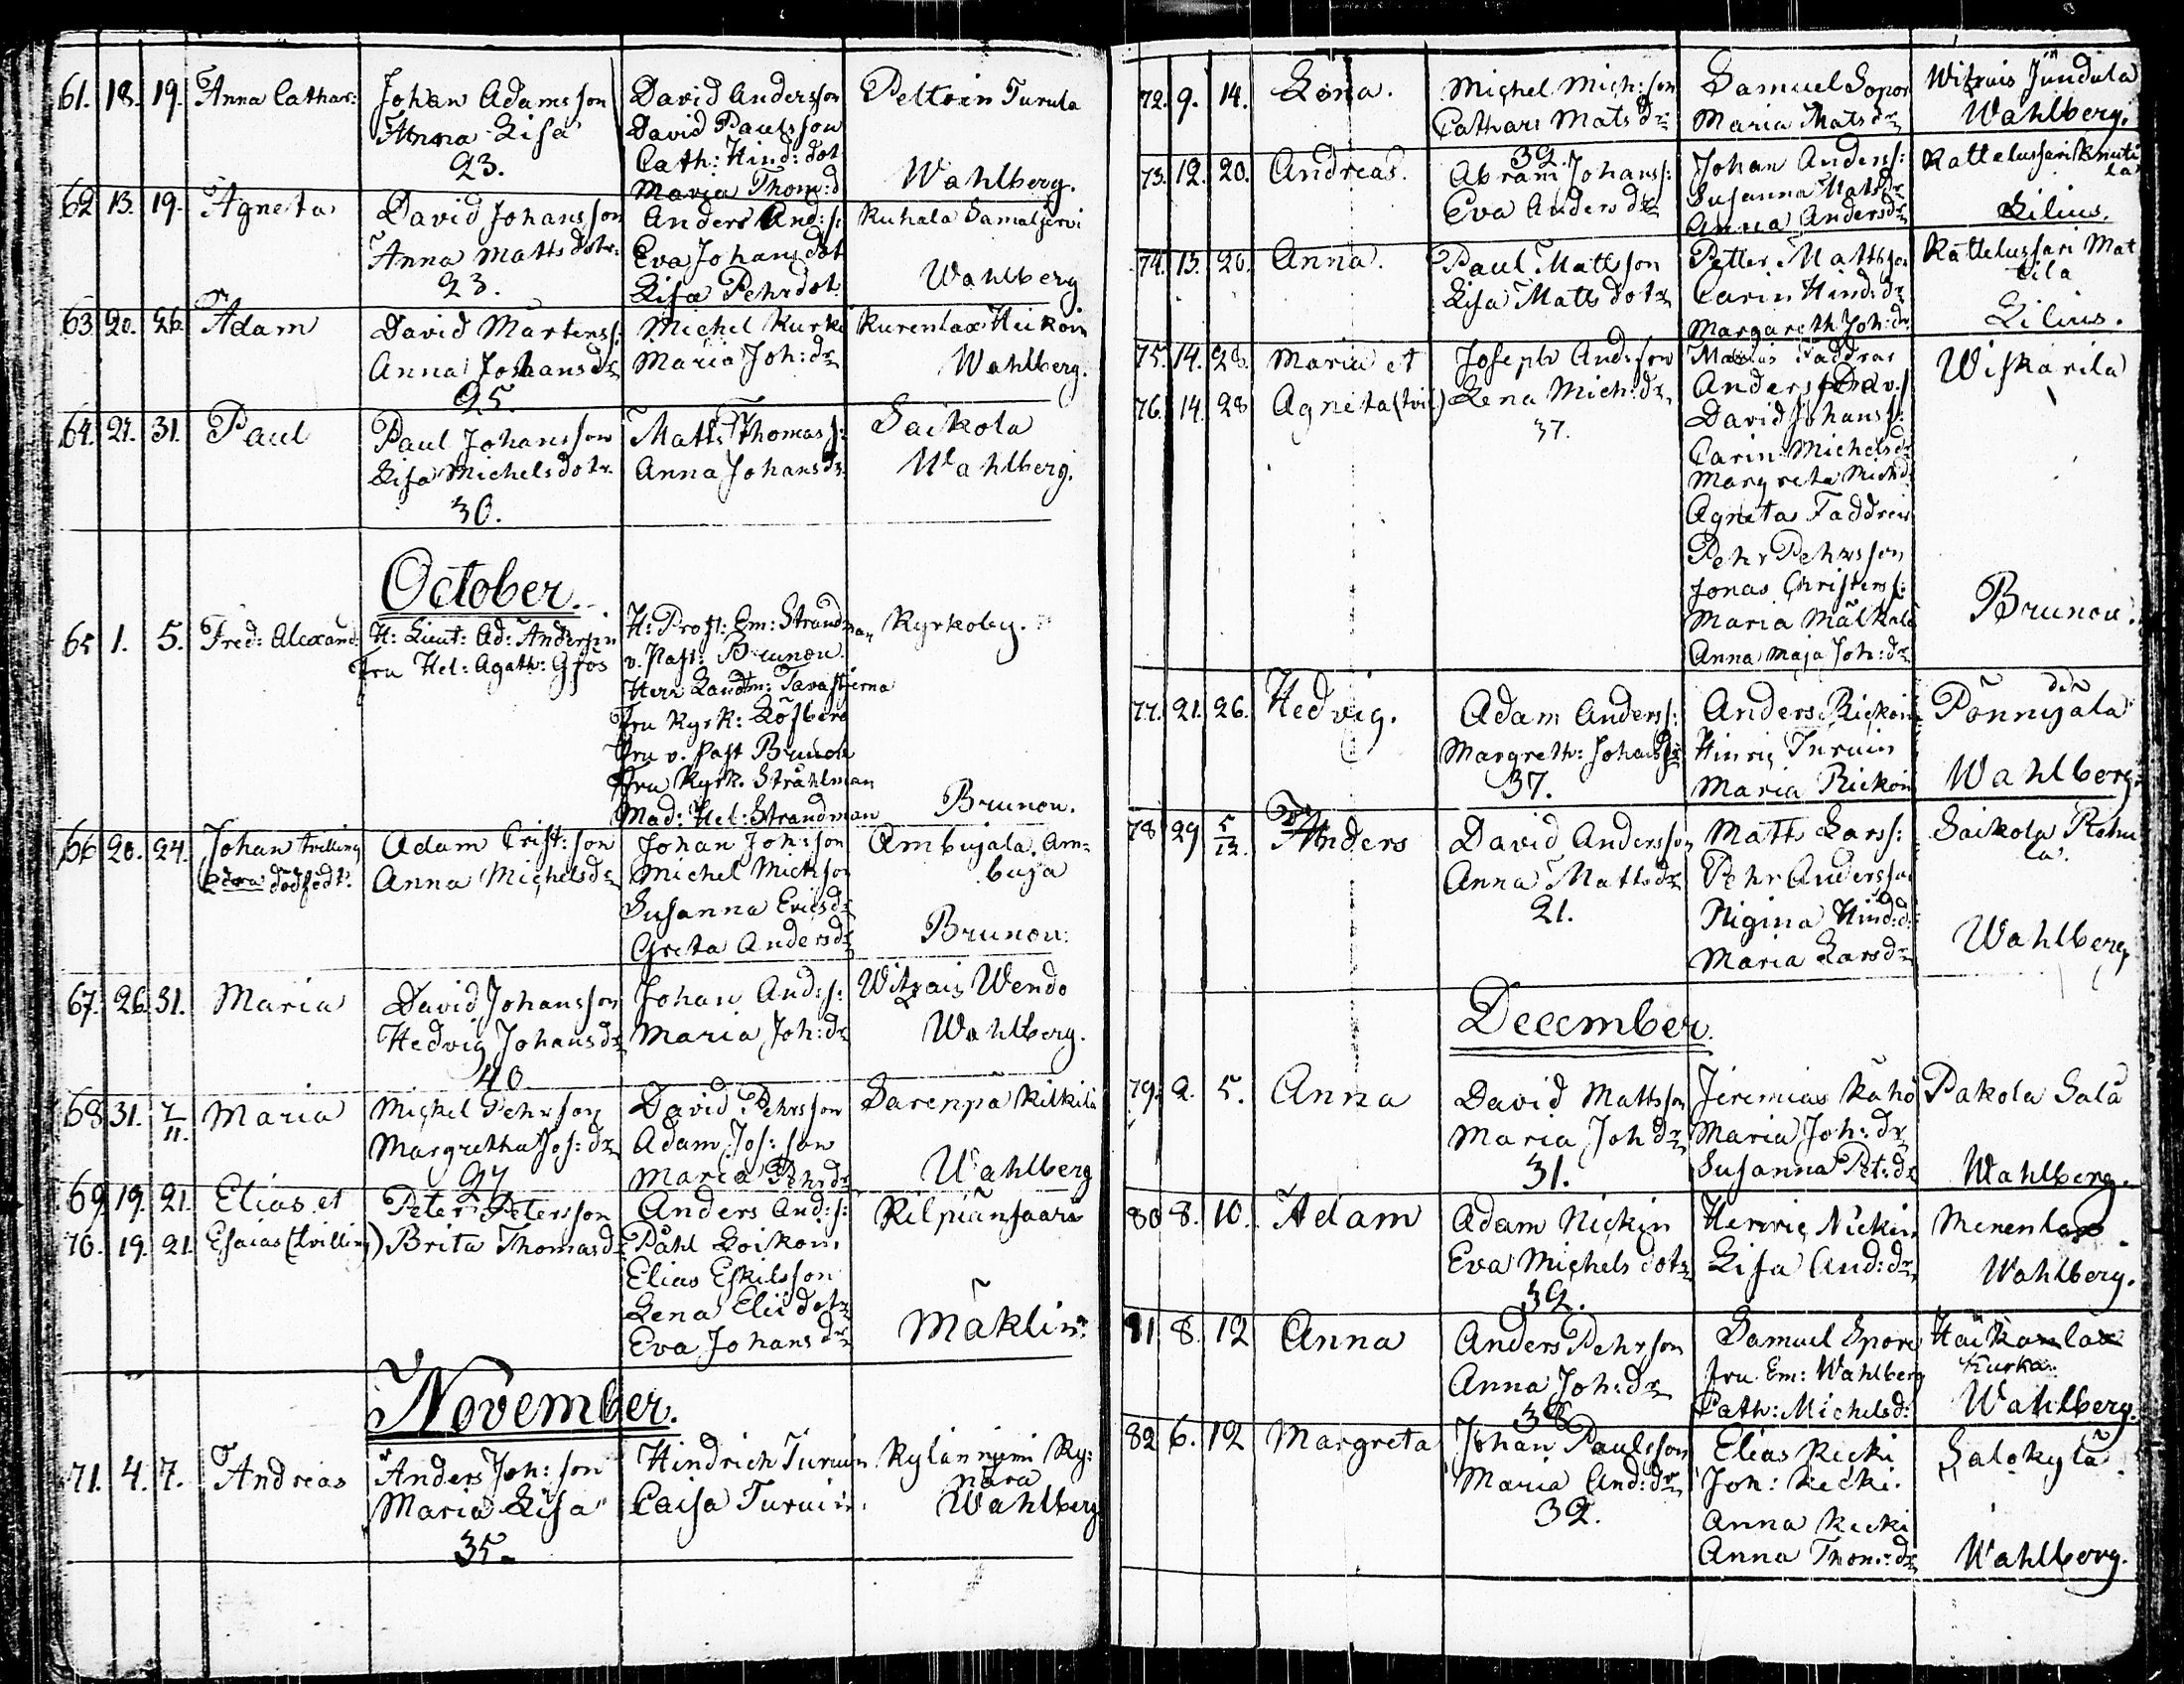 61. 18. 19. Anna Cathar: Johan Adamsson David Andersson Peltoin Turula
Anna Lisa David Paulsson
23. Cath: Hind: dot
Maria Thom: d Wahlberg.
62 13. 19. Agneta David Johansson Anders And: s: Kuhala Samaljervi
Anna Matts dotr: Eva Johans dot
23. Lisa Pehrdot. Wahlberg
63. 20. 26. Adam David Martenss: Michel Kurki Kurenlax Heikoin
Anna Johansdr Maria Joh: dr Wahlberg.
25.
64. 27. 31. Paul Paul Johansson Matts Thomass: Saikola
Lisa Michelsdotr. Anna Johansdr. Wahlberg.
30.
October.
65 1. 5. Fred: Alexand: H: Lieut: Ad: Andersin H: Prost: Em: Strandman Kyrkoby.
Fru Hel: Agath: Gfos v. Past: Brunou.
Herr Landtm: Tavastjerna
Fru Kyrk: Löfberg
Fru v. Past Brunou
Fru Kyrk. Stråhlman
Mad: Hel: Strandman Brunou.
66 20. 24. Johan trilling Adam Crist: son Johan Joh: son Ambujala. Am=
dödfödt. Anna Michelsdr Michel Mickson buja
Susanna Ericsdr
Greta Andersdr Brunou.
67. 26. 31. Maria David Johansson Johan And: s: Witzais Wendo
Hedvig Johansdr Maria Joh: dr Wahlberg.
40
68 31. 7/11. Maria Michel Pehrson David Pehrsson Sarenpä Kilkilä
Margretha Jos: dr Adam Jos: son
27 Maria Pehrsdr Wahlberg
69. 19. 21. Elias et Peter Petersson Anders And: s: Kilpiänsaari
70. 19. 21. Esaias (tvilling) Brita Thomasdr Påhl Loikoin,
Elias Eskilsson
Lena Elii dotr
Eva Johansdr Mäklin.
November.
71. 4. 7. Andreas Anders Joh: son Hindrich Turuin Kylänniemi Ky:
Maria Lisa Caisa Turuin. närä
35. Wahlberg
72. 9. 14. Lena. Michel Mich: son Samuel Sopor Witzais Jundula
Cathari Matsdr Maria Matsdr Wahlberg.
32.
73. 12. 20. Andreas. Abram Johanss: Johan Anderss: Kattelussari Knuti
Eva Andersdr Susanna Matsdr la
Anna Andersdr Lilius.
74. 13. 20. Anna. Paul Mattsson Petter Mattsson Kattelussari Mat
Lisa Matts dotr Carin Hind: dr tila
Margareth Joh: dr Lilius.
75. 14. 28. Maria et Joseph And: son Marias Faddrar Wiskarila
76. 14. 28 Agneta (tvil.) Lena Mich: dr. Anders Dav. s
37. David Johanss:
Carin Michelsdr
Margreta Michd:
Agnetas Faddrar
Pehr Pehrsson
Jonas Christerss:
Maria Mälkiä
Anna Maja Joh: dr Brunou.
77. 21. 26. Hedvig. Adam Anderss: Anders Rickoin Pönnyälä
Margreth: Johansdr Hinric Turuin
37. Maria Rickoin Wahlberg.
78 29 5/12. Anders David Andersson Matts Larss: Saikola Rohu
Anna Mattsdr Pehr Andersson la.
21. Rigina Hind: d:
Maria Larsdr Wahlberg
December.
79. 2. 5. Anna David Mattsson Jeremias Kähö Pakola Sala
Maria Joh dr Maria Joh: dr
31. Susanna Pet: dr Wahlberg.
80 8. 10. Adam Adam Nickin Henric Nickin Menenlax
Eva Michels dotr Lisa And: dr. Wahlberg.
32.
81 8. 12 Anna Anders Pehrson Samuel Spore Häikänlax
Anna Joh: dr Fru Em: Wahlberg Kurka.
38 Cath: Michelsd: Wahlberg.
82 6. 12 Margreta Johan Paulsson Elias Kecki Salokylä
Maria And: dr Joh: Kecki.
32. Anna Kecki
Anna Thom: dr Wahlberg.